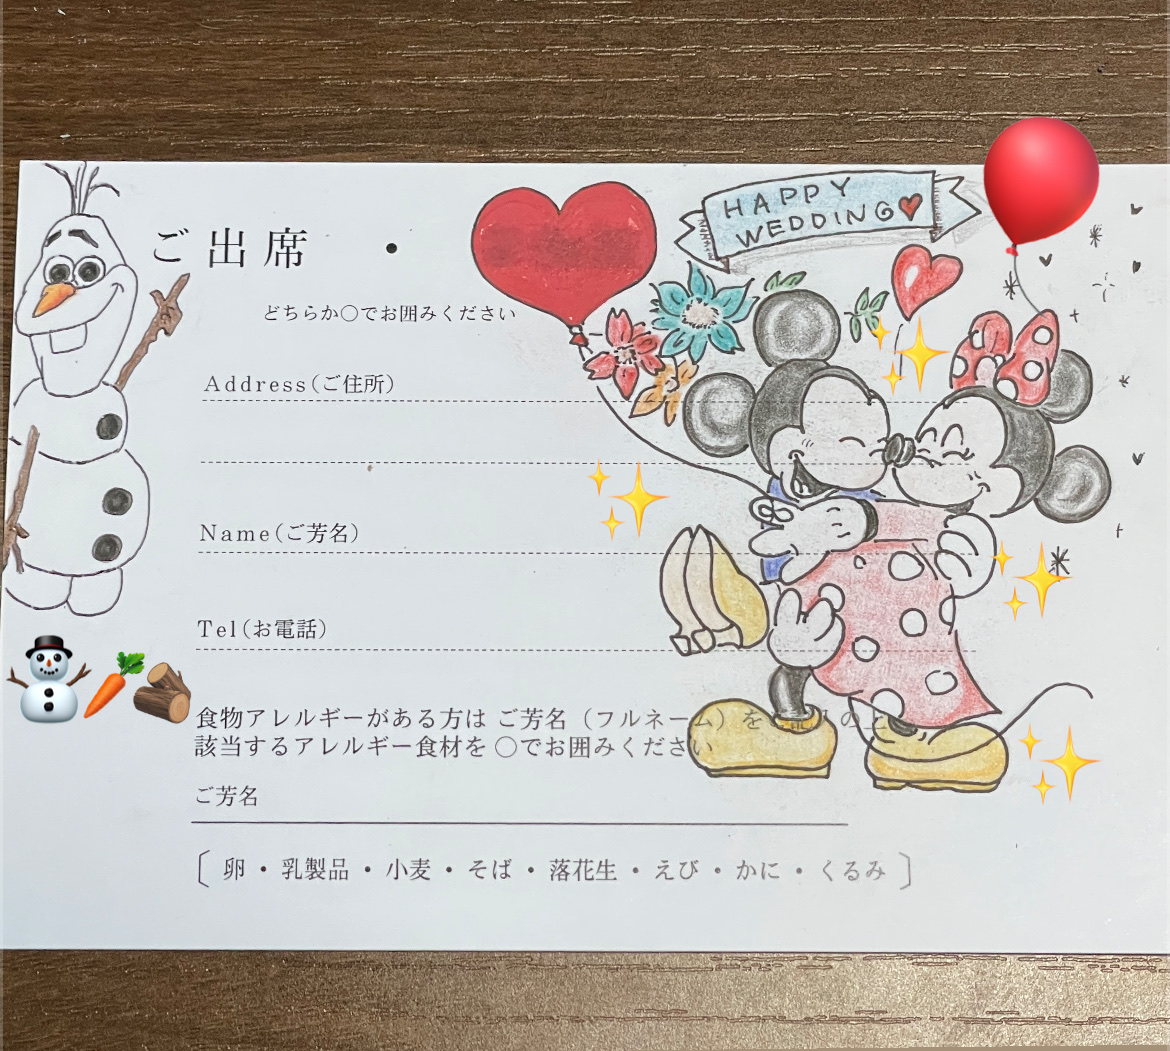 ご出席 ・
HAPPY
WEDDING
どちらか〇でお囲みください
Address(ご住所)
Name(ご芳名)
Tel(お電話)
食物アレルギーがある方は ご芳名（フルネーム）を
該当するアレルギー食材を 〇でお囲みください
ご芳名
〔 卵 ・ 乳製品 ・ 小麦 ・ そば ・ 落花生 ・ えび ・ かに ・ くるみ 〕